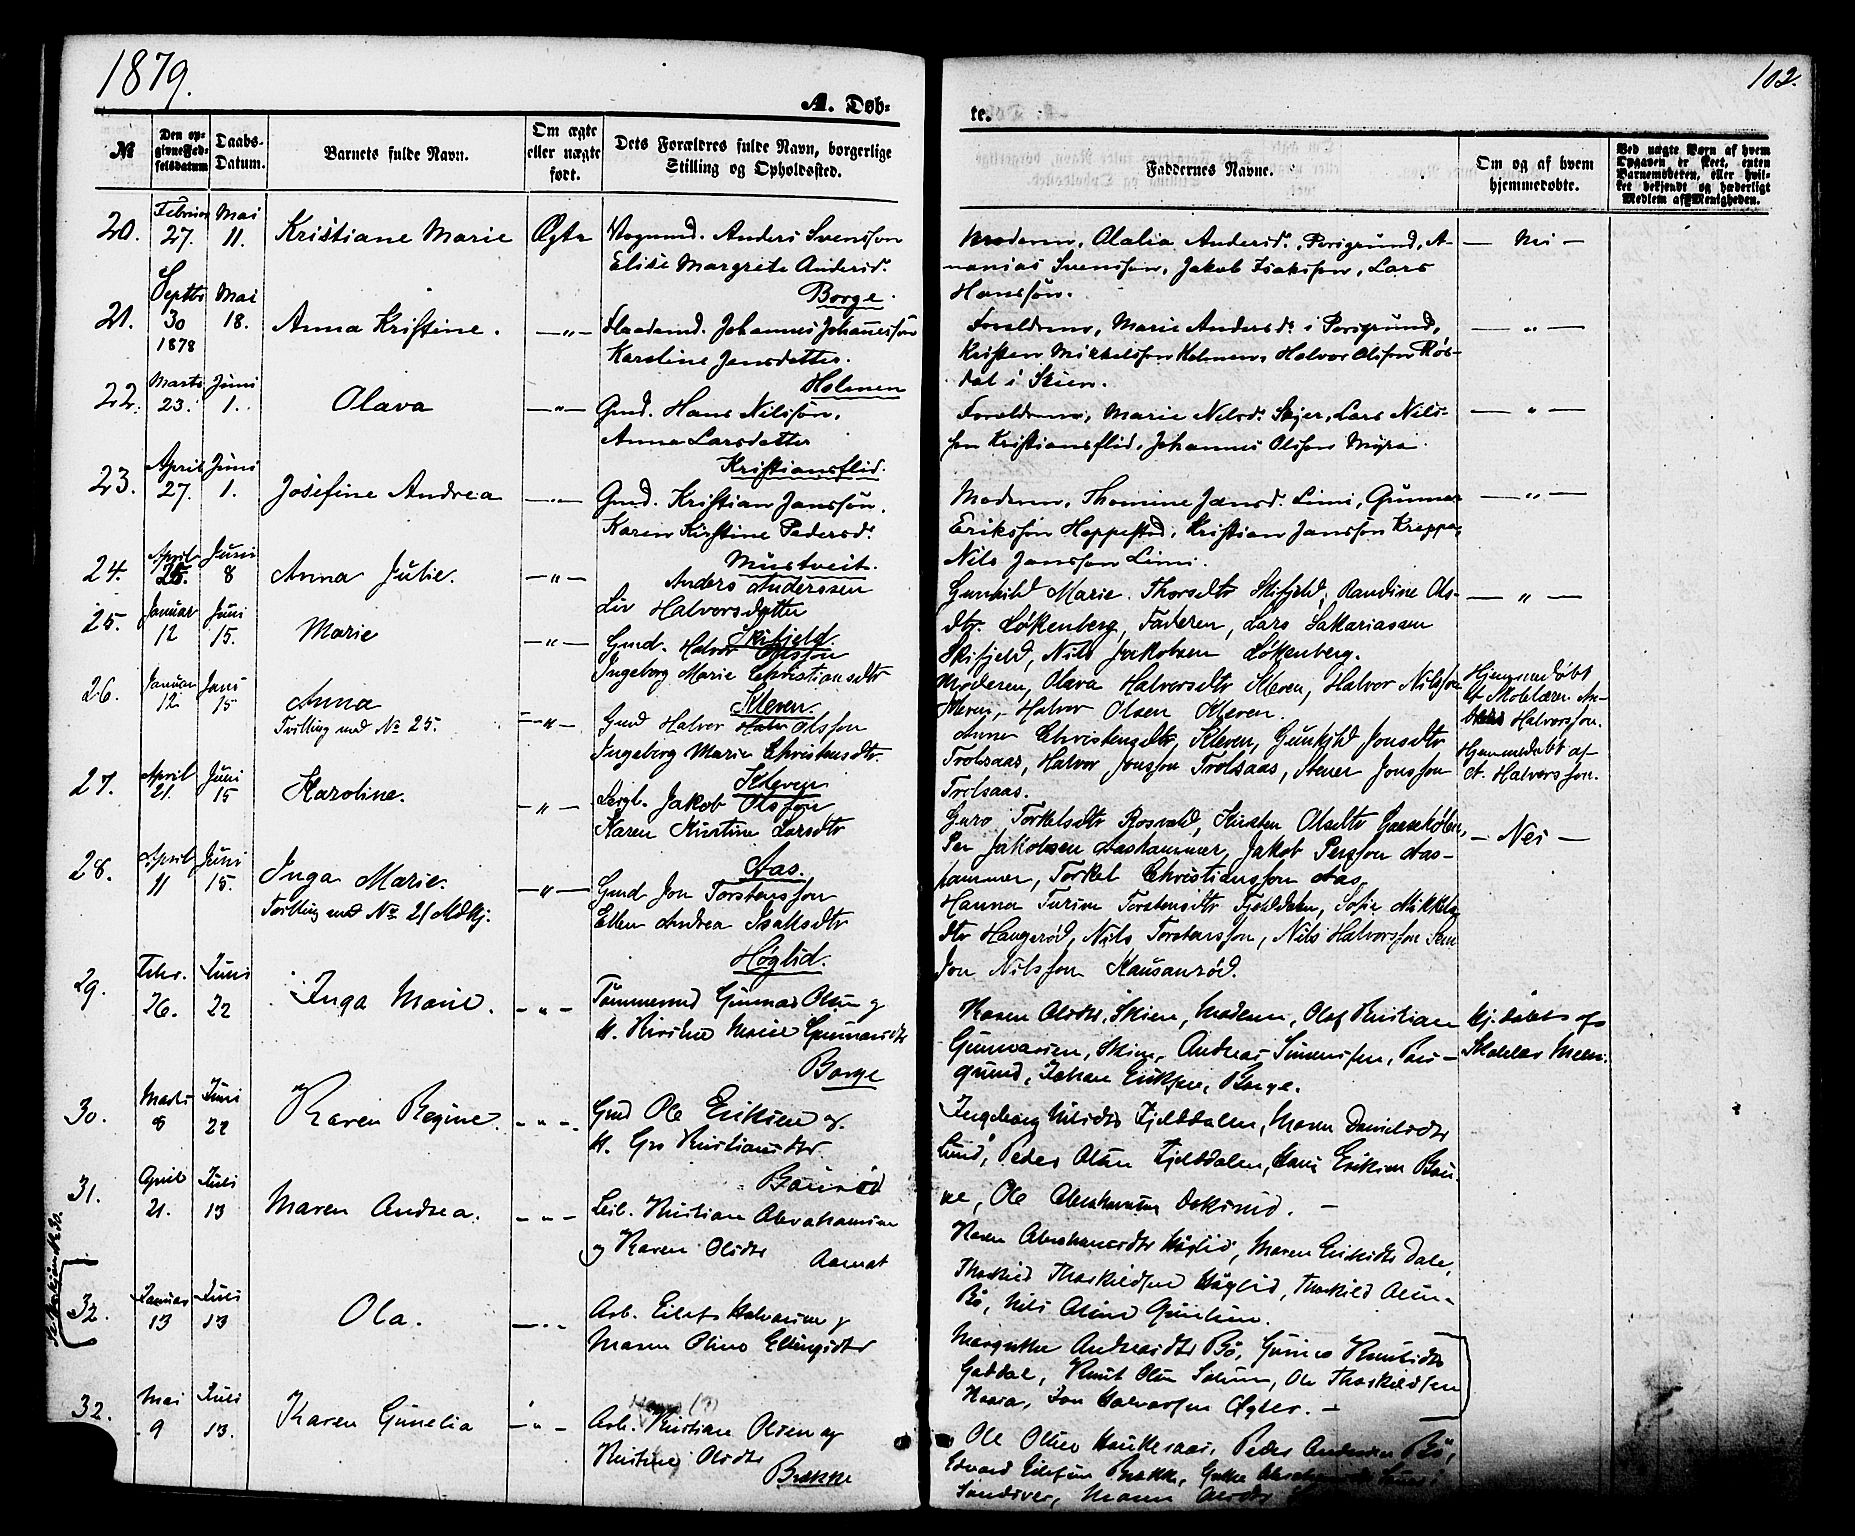 1879.
102.
A. Døb-
te.
№
Den op-
givne Fød-
selsdatum
Daabs-
Datum.
Barnets fulde Navn.
Om ægte
eller uægte
født.
Dets Forældres fulde Navn, borgerlige
Stilling og Opholdssted.
Faddernes Navne.
Om og af hvem
hjemmedøbte.
Ved uægte Børn af hvem
Opgaven er skeet, enten
Barnemoderen, eller hvil-
ket bekjendt og hæderligt
Medlem af Menigheden.
20.
Februar
27.
Mai
11.
Kristiane Marie
Ægte
Anders Svensson
Elise Margrete Andersd.
Borge.
Moderen, Olalia Andersd. Porsgrund, A-
nanias Svensson, Jakob Isaksson, Lars
Hansson.
— Nei —
21.
Septbr
30
1878
Mai
18.
Anna Kristine.
— „ —
Johannes Johannesson
Karoline Jensdatter.
Holmen
Forældrene, Marie Andersdr i Porsgrund,
Kristen Mikkelsson Holmen, Halvor Olsson Røs-
dal i Skien.
— „ —
22.
Marts
23.
Juni
1.
Olava
— „ —
Gmd. Hans Nilsson,
Anna Larsdatter
Kristiansflid.
Forældrene, Marie Nilsdr. Lars Nils-
son Kristiansflid, Johannes Olsson Myra.
— „ —
23.
April
27.
Juni
1.
Josefine Andrea
— „ —
Gmd. Kristian Jansson,
Karen Kirstine Pedersdr.
Mustveit.
Moderen, Thomine Jansd. Limi, Gunnar
Eriksson Heppestad, Kristian Jansson Kreppa,
Nils Jansson Limi.
— „ —
24.
April
25.
Juni
8
Anna Julie.
— „ —
Anders Anderssen
Liv Halvorsdatter
Skifjeld.
Gunhild Marie Thorsdtr Skifjeld, Randine Ols-
dtr. Løkenberg, Faderen, Lars Sakariassen
Skifjeld, Nils Jakobsen Løkenberg.
— „ —
25.
Januar
12
Juni
15.
Marie
— „ —
Gmd. Halvor Olsson
Ingeborg Marie Christiansdtr
Kleven.
Moderen, Olava Halvorsdtr Kleven, Halvor Nilsson
Kleven, Halvor Olsen Kleven.
Hjemmedøbt
af Skolelærer An-
Halvorsson.
26.
Januar
12
Juni
15
Anna
Tvilling med No 25.
— „ —
Gmd Halvor Olsson
Ingeborg Marie Christensdtr.
Kleven
Anne Christensdtr, Kleven, Gunhild Jonsdtr
Trolsaas, Halvor Jonsson Trolsaas, Stener Jonsson
Trolsaas.
Hjemmedøbt af
A. Halvorsson.
27.
April
21.
Juni
15
Karoline.
— „ —
Jakob Olsson
Karen Kirstine Larsdtr
Aas.
Guro Torkelsdtr Rosvald, Kirsten Olsdtr
Per Jakobsen Aashammer, Jakob Persson Aas-
hammer, Torkel Christiansson Aas
— Nei —
28.
April
11
Juni
15.
Inga Marie.
Tvilling med No 21 Mdkj.
— „ —
Gmd Jon Torstensson
Ellen Andrea Isaksdtr
Høglid.
Hanna Turine Torstensdtr Fjelddalen, Sofie Mikkels
dtr Haugerød, Nils Torstensson, Nils Halvorsson
Jon Nilsson
29.
Febr.
26.
Juni
22
Inga Marie.
— „ —
Tømmermd Gunnar Olsen og
H. Kirstine Marie Gunnarsdtr
Borge
Karen Olsdtr, Skien, Moderen, Olaf Kristian
Gunnarsen, Skien, Andreas Simonsen, Pors-
grund, Johan Eriksen, Borge.
hj. døbt af
30.
Marts
8
Juni
22
Karen Regine.
— „ —
Gmd Ole Eriksen og
H. Gro Kristiansdtr.
Ingeborg Nilsdtr Fjelddalen, Maren Danielsdtr
Lund, Peder Olsen Fjelddalen, Hans Eriksen
Ole Abrahamsen
31.
April
21.
Juli
13
Maren Andrea.
— „ —
Leil. Kristian Abrahamsen
og Karen Olsdtr
Karen Abrahamsdtr Høglid, Maren Eriksdtr Dale,
Thorkild Thorkildsen Høglid, Thorkild Olsen
Bø, Nils Olsen
32.
Januar
13
Juli
13
Ola.
— „ —
Arb. Eilef Halvorsen og
Maren Oline Ellingsdtr
Margrethe Andreasdtr Bø, Knutsdtr
Knut Olsen Solum, Ole Thorkildsen
Jon Halvorsen
32.
Mai
9
Juli
13.
Karen Gunelia
— „ —
Arb. Kristian Olsen og
Olsdtr
Brekke
Ole Olsen Haukesaas, Peder Andersen Bø,
Edvard Eilefsen
Maren Olsdtr